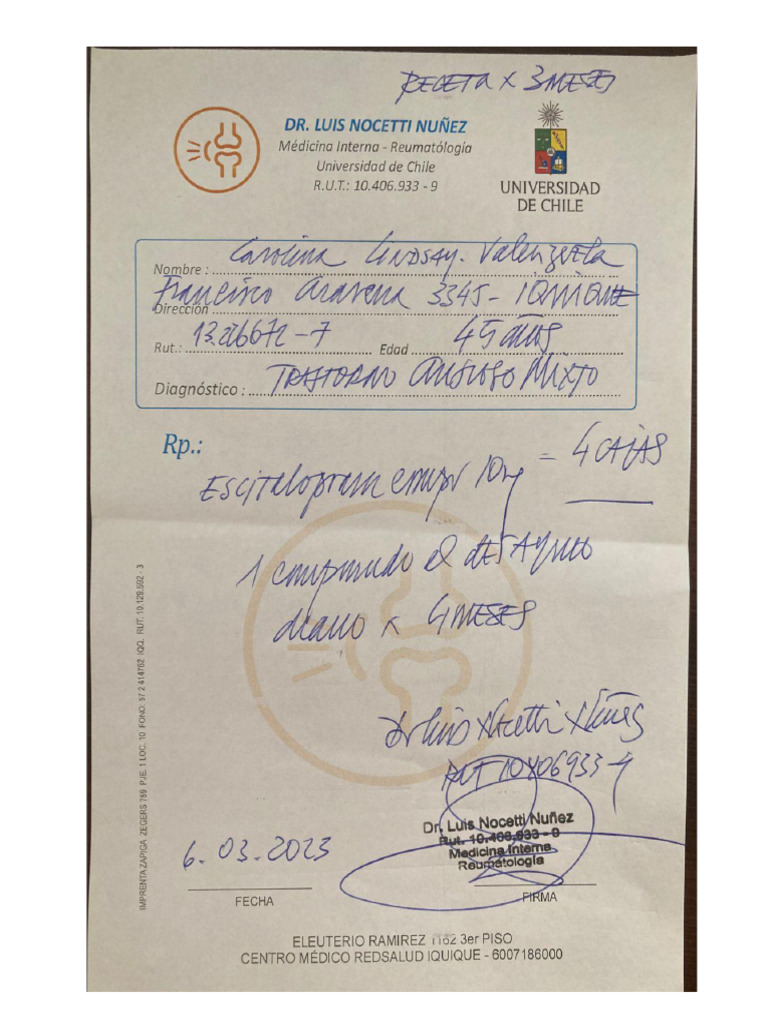 RECETA x 3 MESES
DR. LUIS NOCETTI NUÑEZ
Médicina Interna - Reumatólogía
Universidad de Chile
R.U.T.: 10.406.933 - 9
UNIVERSIDAD
DE CHILE
Nombre : Carolina Lindsay Valenzuela
Dirección Francisco Aravena 3345 - IQUIQUE
Rut.: 13.226672-7 Edad 45 años
Diagnóstico : TRASTORNO ANSIOSO MIXTO
Rp.:
Escitalopram compr 10mg = 4 CAJAS
1 comprimido el desayuno
diario x 4 MESES
Dr Luis Nocetti Nuñez
RUT 10406933-9
Dr. Luis Nocetti Nuñez
Rut. 10.406.933 - 9
Medicina Interna
Reumatología
6.03.2023
FECHA
FIRMA
ELEUTERIO RAMIREZ 1162 3er PISO
CENTRO MÉDICO REDSALUD IQUIQUE - 6007186000
IMPRENTA ZAPIGA ZEGERS 789 PJE. 1 LOC. 10 FONO: 57 2 414762 IQQ. RUT: 10.129.692 - 3